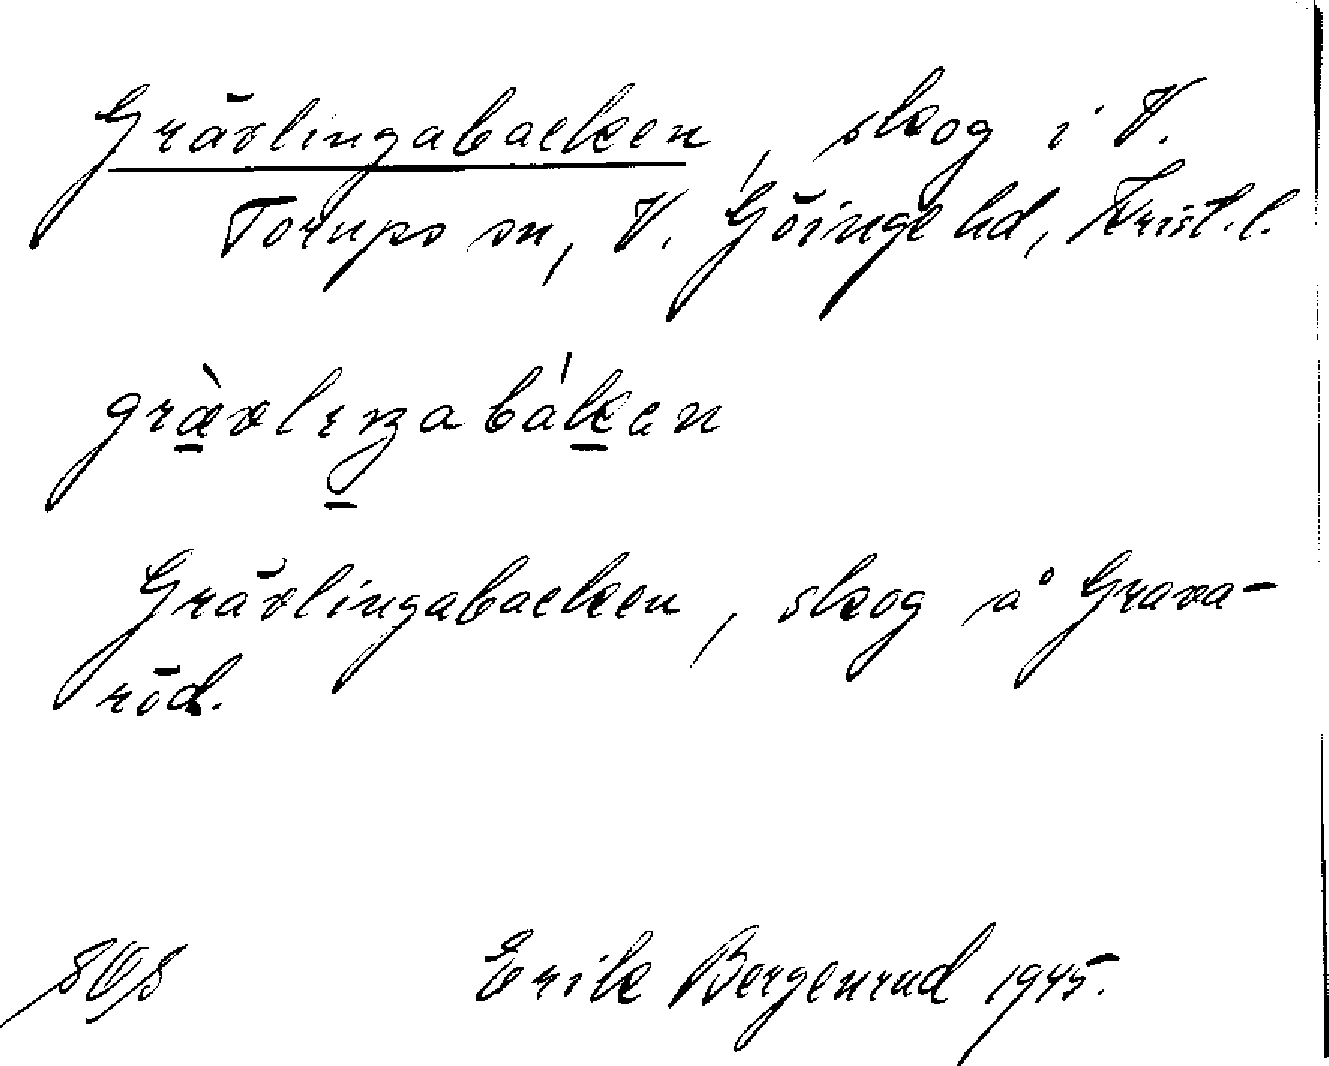 Grävlingabacken, skog i V.
Torups sn, V. Göinge hd, Krist. l.
grävlıŋabáken
Grävlingabacken, skog å Grava-
röd.
Erik Bergenrud 1945.